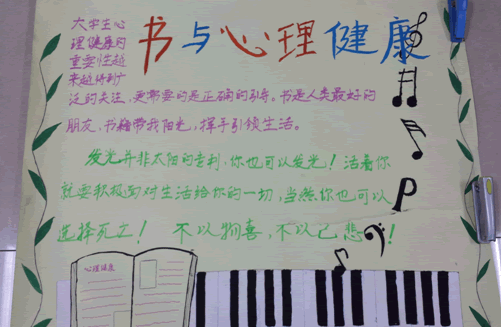 书与心理健康
大学生心
理健康的
重要性越
来越得到广
泛的关注，更需要的是正确的引导。书是人类最好的
朋友，书籍带我阳光，挥手引领生活。
发光并非太阳的专利，你也可以发光！活着你
就要积极面对生活给你的一切，当然你也可以
选择死亡！ 不以物喜，不以己悲！
心理健康